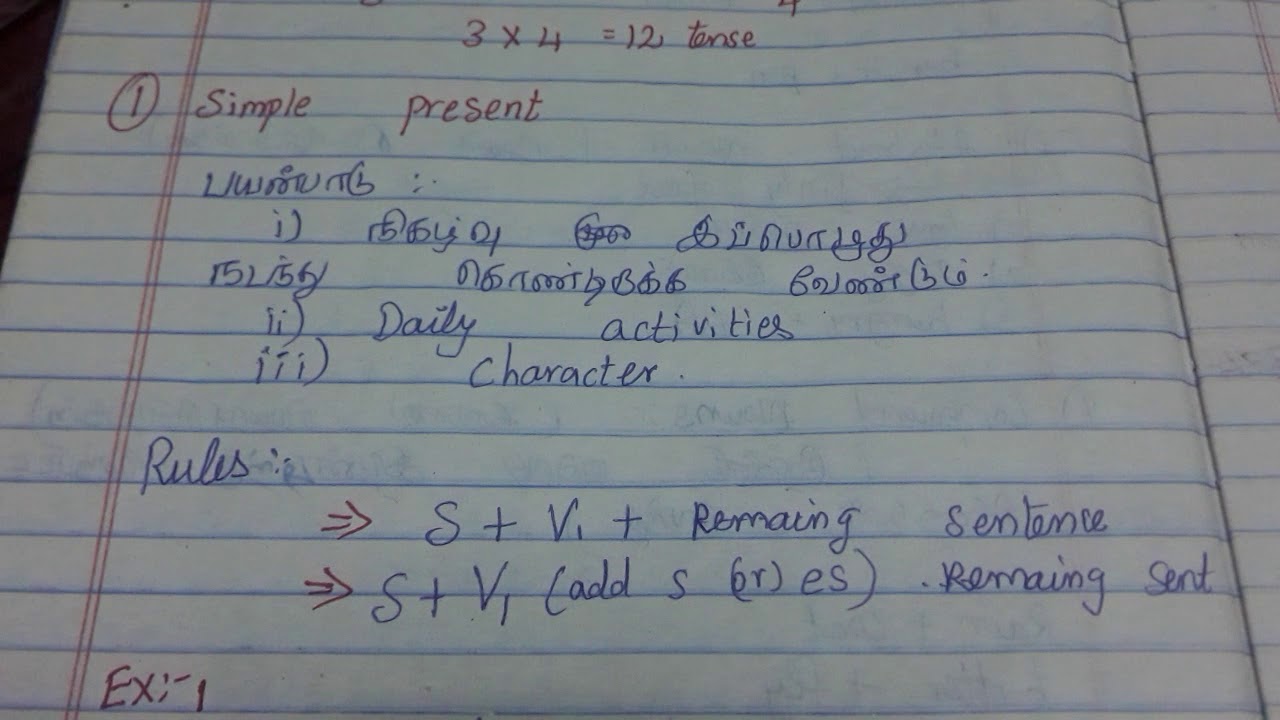 3 x 4 = 12 tense
① Simple present
பயன்பாடு :-
i) நிகழ்வு இப்பொழுது
நடந்து கொண்டிருக்க வேண்டும்.
ii) Daily activities
iii) Character.
Rules :-
⇒ S + V1 + Remaing Sentence
⇒ S + V1 (add s (or) es) . Remaing Sent
Ex:-1